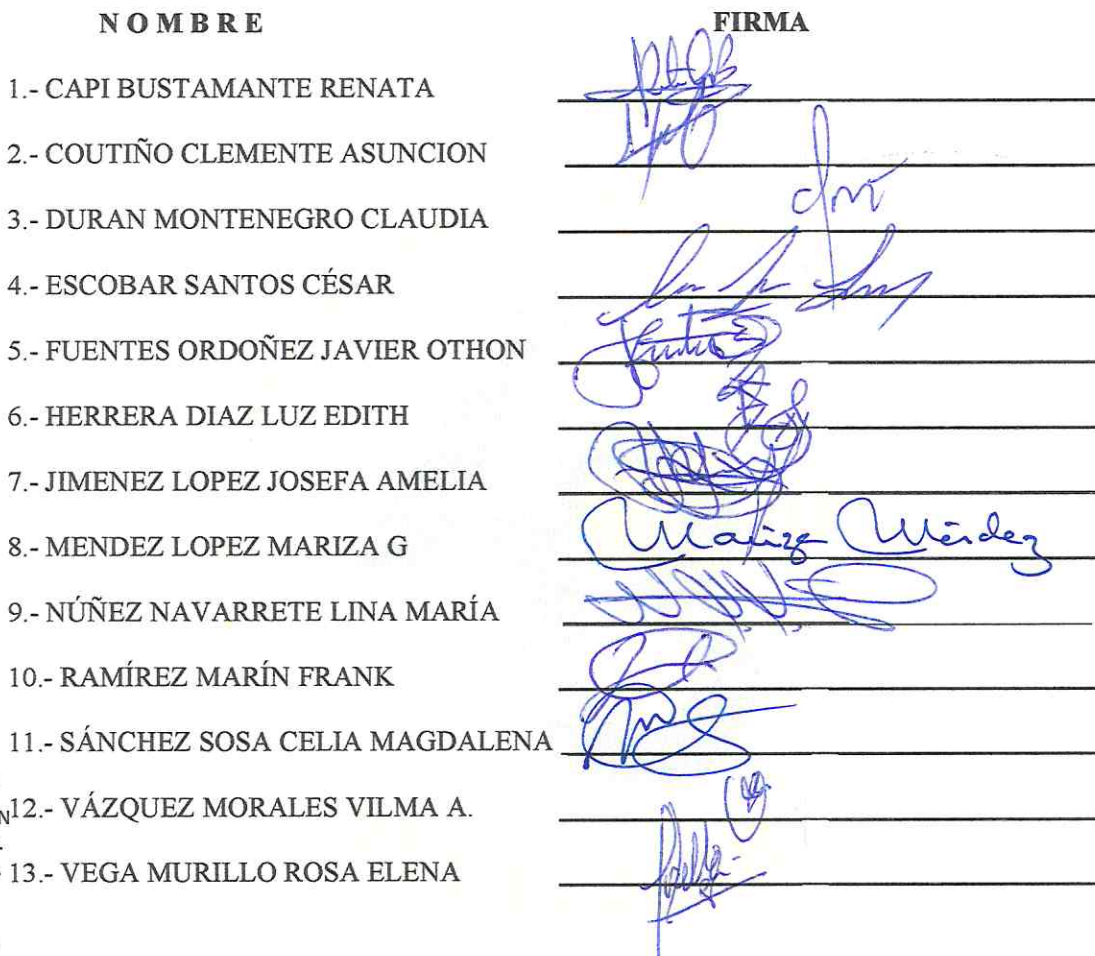 N O M B R E FIRMA
1.- CAPI BUSTAMANTE RENATA
2.- COUTIÑO CLEMENTE ASUNCION
3.- DURAN MONTENEGRO CLAUDIA
4.- ESCOBAR SANTOS CÉSAR
5.- FUENTES ORDOÑEZ JAVIER OTHON
6.- HERRERA DIAZ LUZ EDITH
7.- JIMENEZ LOPEZ JOSEFA AMELIA
8.- MENDEZ LOPEZ MARIZA G Mariza Méndez
9.- NÚÑEZ NAVARRETE LINA MARÍA
10.- RAMÍREZ MARÍN FRANK
11.- SÁNCHEZ SOSA CELIA MAGDALENA
N 12.- VÁZQUEZ MORALES VILMA A.
13.- VEGA MURILLO ROSA ELENA